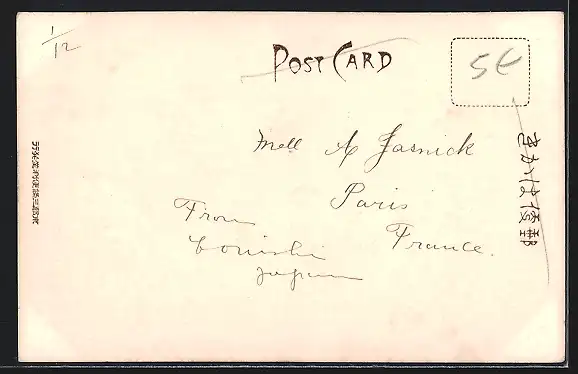 1/12
POST CARD
5€
Mell A Jasnick
Paris
France.
From
Conishi
Japan
きかは便郵